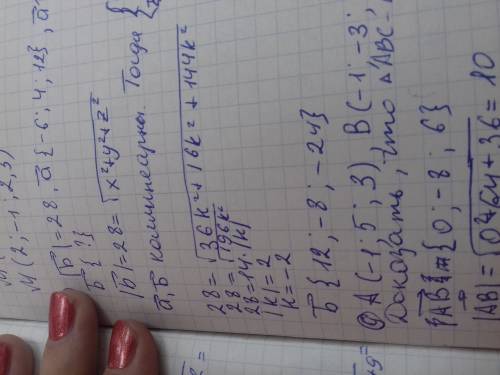 M(2; -1; 2,3)
|b̅| = 28, a̅ {-6; 4; 12}, a̅
b̅ { ? }
|b̅| = 28 = √x²+y²+z²
a̅, b̅ коллинеарны. Тогда {
28 = √36k²+16k²+144k²
28 = √196k²
28 = 14·|k|
|k| = 2
k = -2
b̅ {12; -8; -24}
A(-1; 5; 3) B(-1; -3;
Доказать, что ΔABC -
{AB} = {0; -8; 6}
|AB| = √0²+64+36 = 10